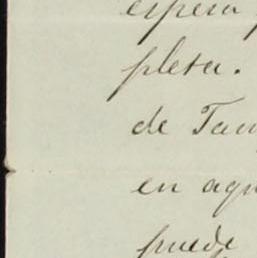 espera
pleta.
de Tam
en aqu
puede